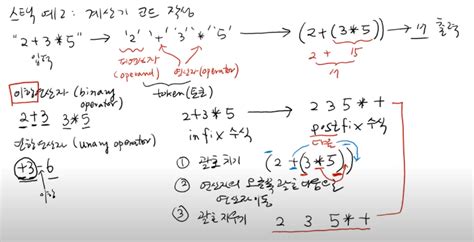 스택 예2: 계산기 코드 작성
"2+3*5" → '2' '+' '3' '*' '5' → (2+(3*5)) → 17 출력
입력
피연산자 (operand) 연산자(operator)
2 + 15
17
token(토큰)
이항연산자 (binary operator)
2+3 3*5
단항연산자 (unary operator)
+3 -6
이항
2+3*5 → 2 3 5 * +
infix 수식 postfix 수식
다음
① 괄호치기 (2+(3*5))
② 연산자의 오른쪽 괄호 다음으로 연산자 이동
③ 괄호 지우기 2 3 5 * +